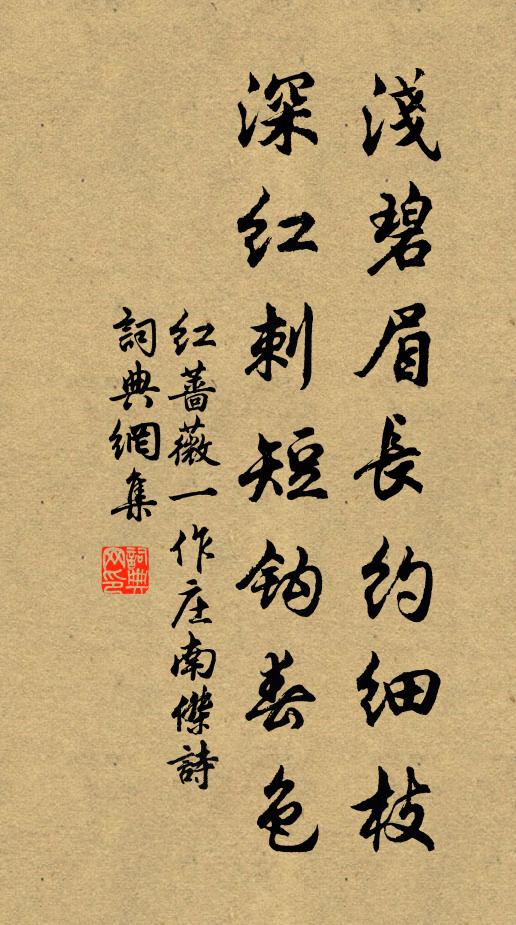 淺碧眉長約細枝
深紅刺短鈎春色
紅薔薇一作庄南傑詩
詞典網集
詞典
网印